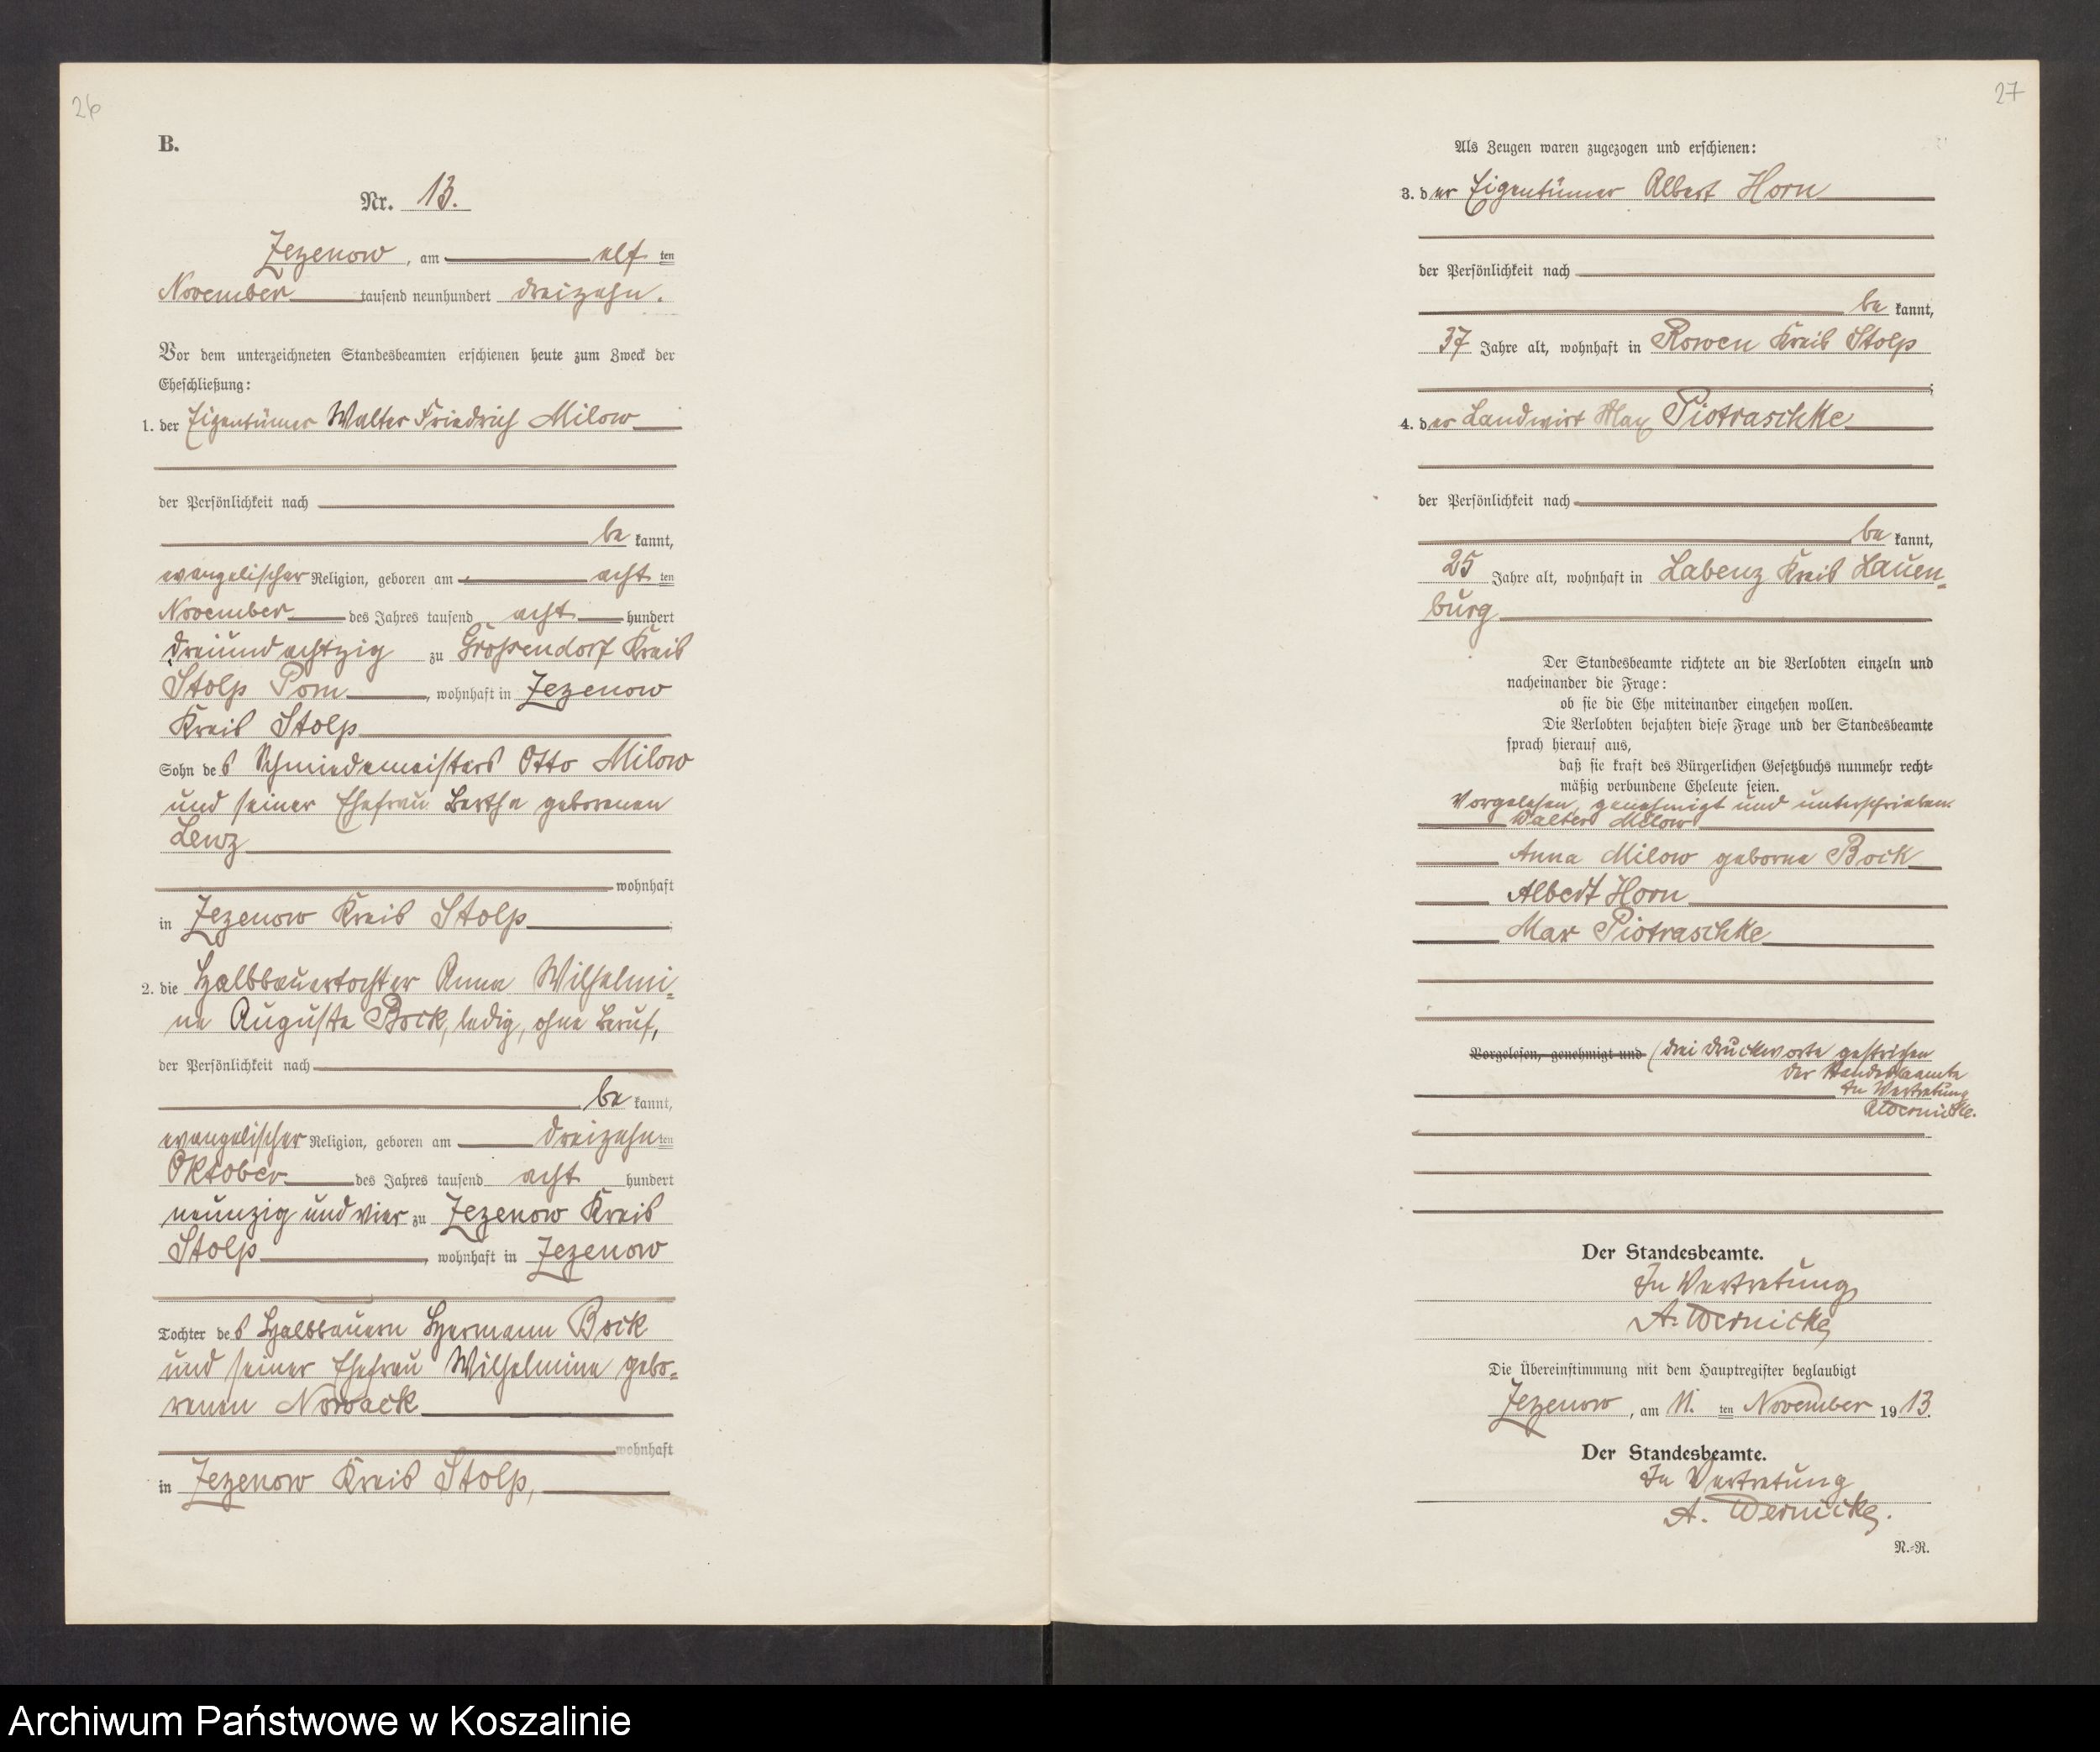 26
B.
Nr. 13.
Zezenow, am elf ten
November tausend neunhundert dreizehn.
Vor dem unterzeichneten Standesbeamten erschienen heute zum Zweck der
Eheschließung:
1. der Eigentümer Walter Friedrich Milow
der Persönlichkeit nach
be kannt,
evangelischer Religion, geboren am acht ten
November des Jahres tausend acht hundert
dreiundachtzig zu Grossendorf Kreis
Stolp Pom, wohnhaft in Zezenow
Kreis Stolp
Sohn des Schmiedemeisters Otto Milow
und seiner Ehefrau Bertha geborenen
Lenz
wohnhaft
in Zezenow Kreis Stolp;
2. die Halbbauertochter Anna Wilhelmi-
ne Auguste Bock, ledig, ohne Beruf,
der Persönlichkeit nach
be kannt,
evangelischer Religion, geboren am dreizehn ten
Oktober des Jahres tausend acht hundert
neunzig und vier zu Zezenow Kreis
Stolp, wohnhaft in Zezenow
Tochter des Halbbauern Hermann Bock
und seiner Ehefrau Wilhelmine gebo-
renen Nowack
wohnhaft
in Zezenow Kreis Stolp,
27
Als Zeugen waren zugezogen und erschienen:
3. der Eigentümer Albert Horn
der Persönlichkeit nach
be kannt,
37 Jahre alt, wohnhaft in Rowen Kreis Stolp
;
4. der Landwirt Max Piotraschke
der Persönlichkeit nach
be kannt,
25 Jahre alt, wohnhaft in Labenz Kreis Lauen-
burg
Der Standesbeamte richtete an die Verlobten einzeln und
nacheinander die Frage:
ob sie die Ehe miteinander eingehen wollen.
Die Verlobten bejahten diese Frage und der Standesbeamte
sprach hierauf aus,
daß sie kraft des Bürgerlichen Gesetzbuchs nunmehr recht-
mäßig verbundene Eheleute seien.
Vorgelesen, genehmigt und unterschrieben.
Walter Milow
Anna Milow geborne Bock
Albert Horn
Max Piotraschke
Vorgelesen, genehmigt und (drei Druckworte gestrichen
Der Standesbeamte
In Vertretung
A Wernicke.
Der Standesbeamte.
In Vertretung
A. Wernicke
Die Übereinstimmung mit dem Hauptregister beglaubigt
Zezenow, am 11. ten November 1913.
Der Standesbeamte.
In Vertretung
A. Wernicke.
N.-R.
Archiwum Państwowe w Koszalinie